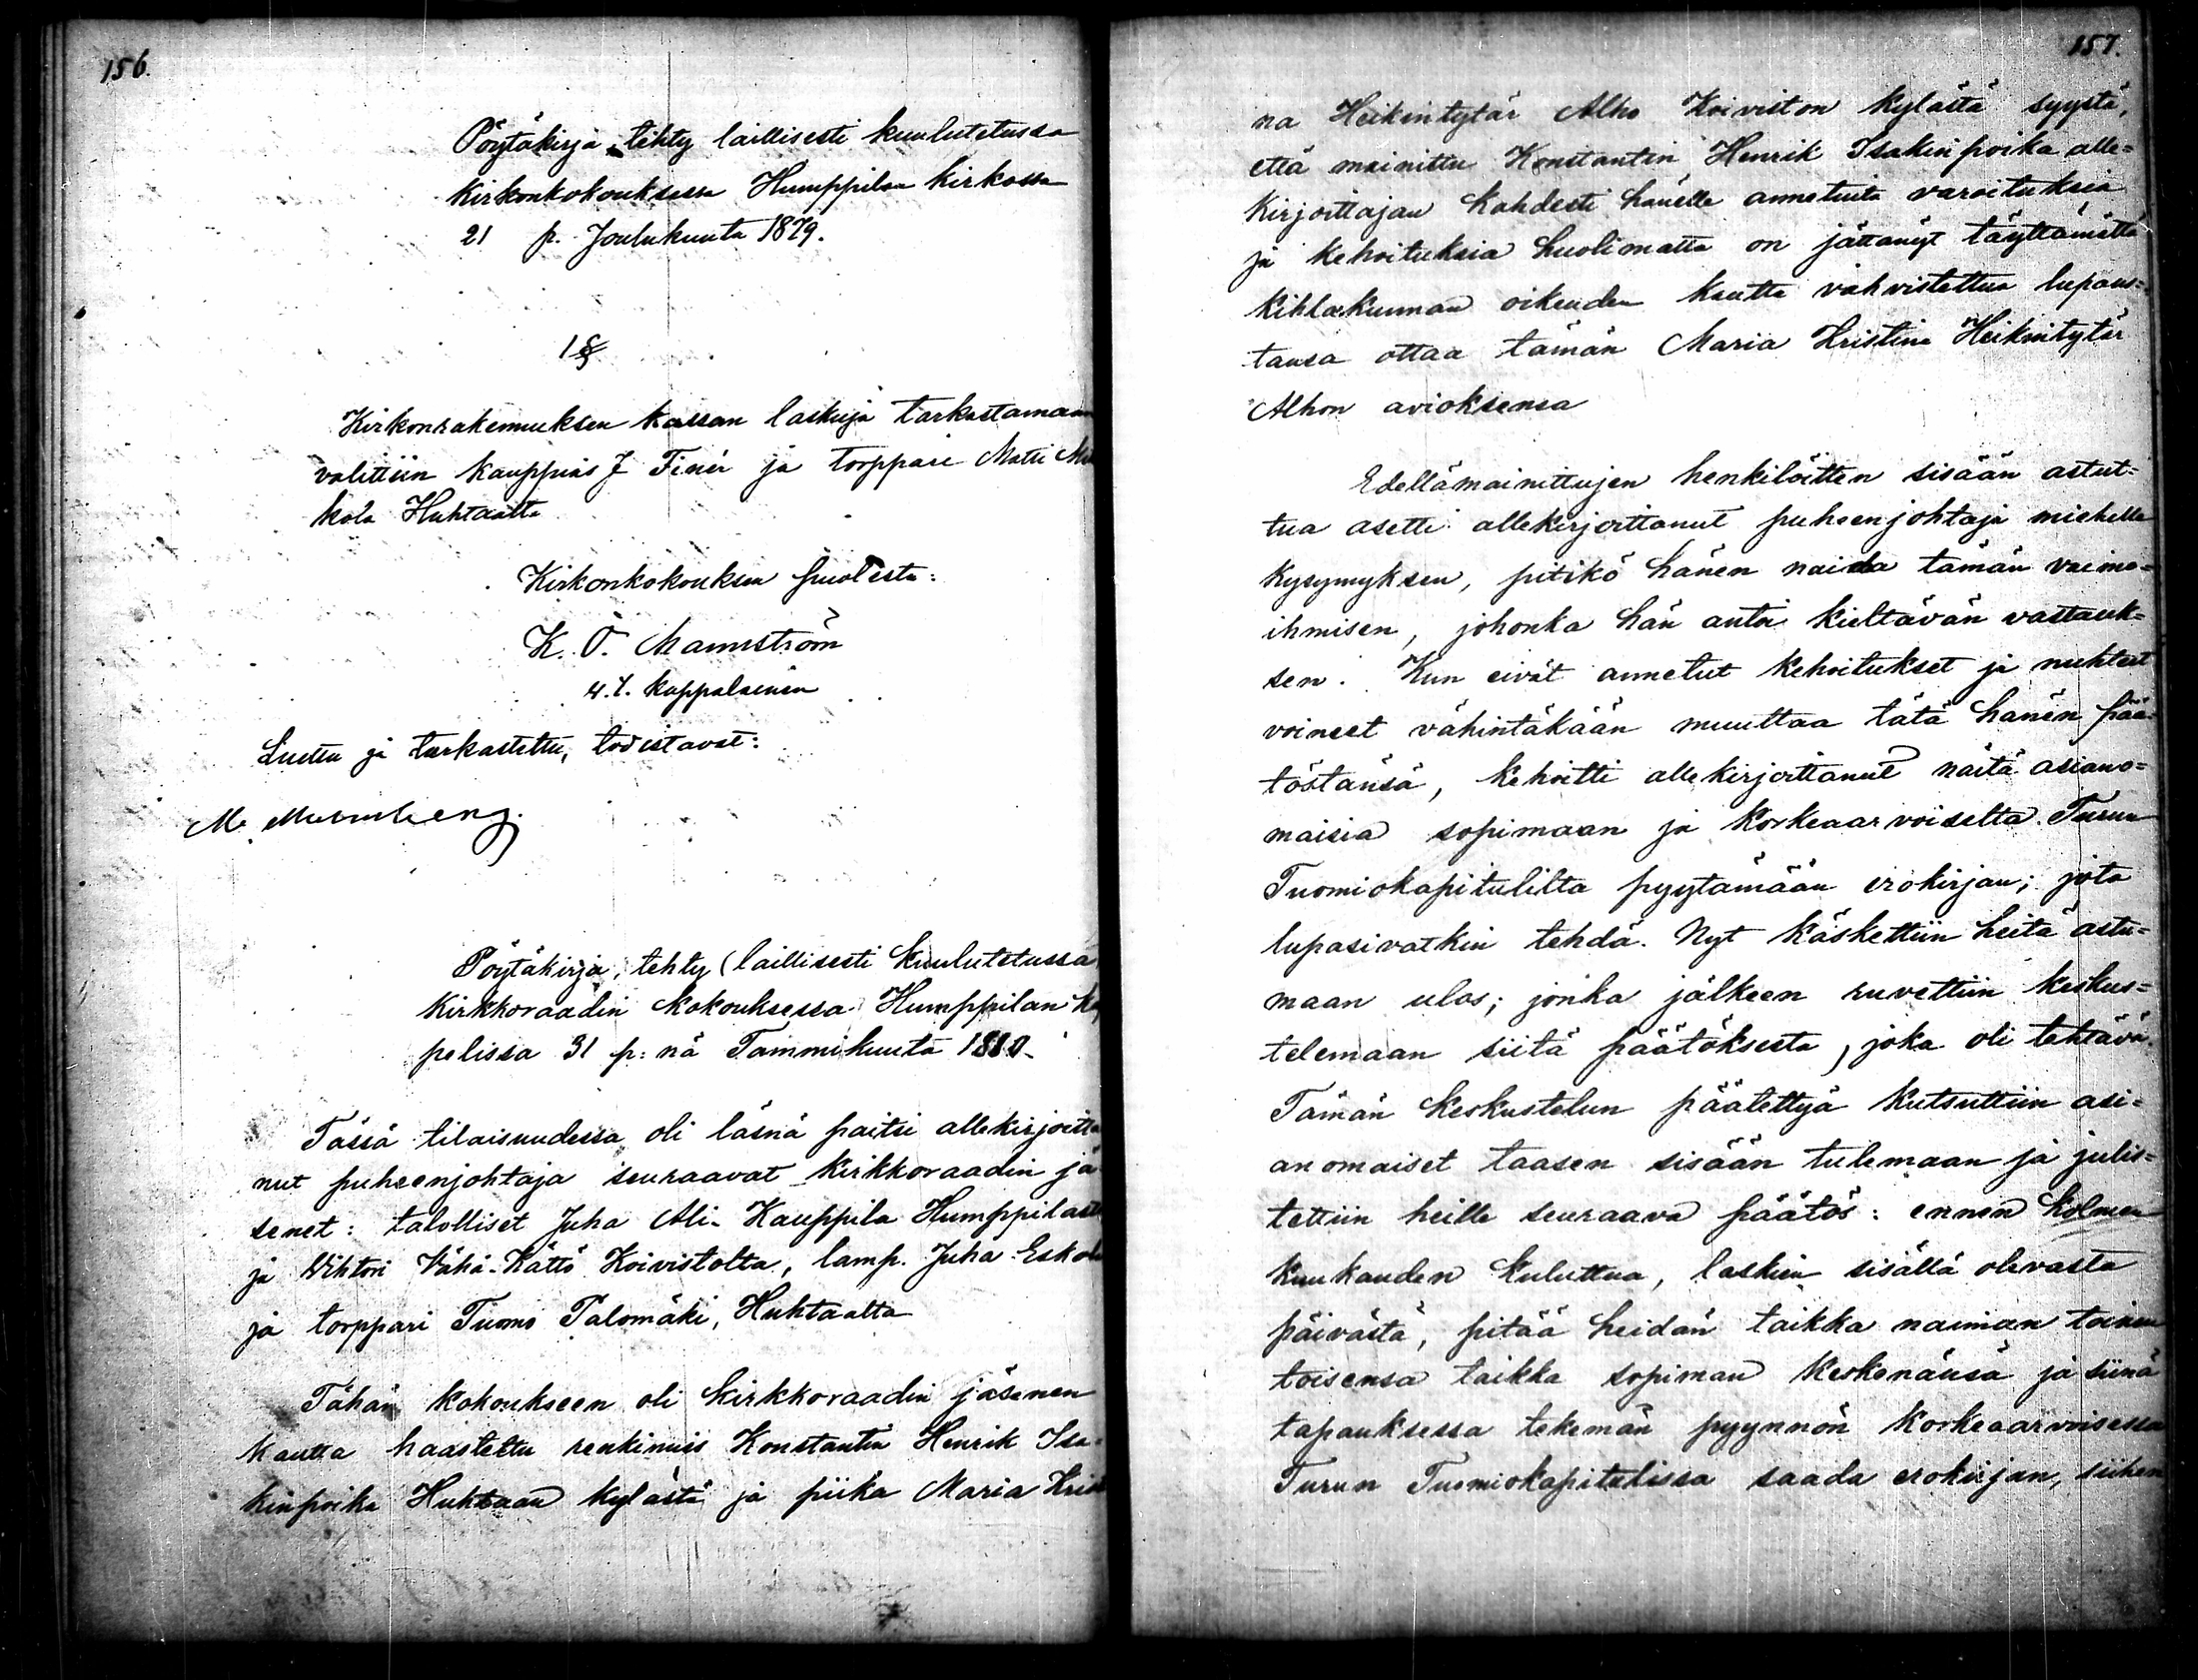 156.
Pöytäkirja, tehty laillisesti kuulutetussa
Kirkonkokouksessa Humppilan kirkossa
21 p. Joulukuuta 1879.
1 §
Kirkonrakennuksen kassan laskuja tarkastamaan
valittiin kauppias J Tinér ja torppari Matti
kola Huhtaalta
Kirkonkokouksen puolesta:
K. O. Mannström
v.t. kappalainen
Luettu ja tarkastettu, todistavat:
M. Murmberg.
Pöytäkirja, tehty (laillisesti kuulutetussa
Kirkkoraadin kokouksessa Humppilan ka
pelissa 31 p:nä Tammikuuta 1880.
Tässä tilaisuudessa oli läsnä paitsi allekirjoitta
nut puheenjohtaja seuraavat Kirkkoraadin jä
senet: talolliset Juha Ali-Kauppila Humppilasta
ja Wihtori Vähä-Kättö Koivistolta, lamp. Juha Eskola
ja torppari Tuomo Palomäki, Huhtaalta
Tähän kokoukseen oli kirkkoraadin jäsenen
kautta haastettu renkimies Konstantin Henrik Isa-
kinpoika Huhtaan kylästä ja piika Maria Kristi
157.
na Heikintytär Alho Koiviston kylästä syystä,
että mainittu Konstantin Henrik Isakinpoika alle=
kirjoittajan kahdesti hänelle annetuita varoituksia
ja kehoituksia huolimatta on jättänyt täyttämättä
kihlakunnan oikeuden kautta vahvistettua lupaus=
tansa ottaa tämän Maria Kristina Heikintytär
Alhon avioksensa
Edellämainittujen henkilöitten sisään astut=
tua asetti allekirjoittanut puheenjohtaja miehelle
kysymyksen, pitikö hänen naida tämän vaimo=
ihmisen, johonka hän antoi kieltävän vastauk=
sen. Kun eivät annetut kehoitukset ja nuhteet
voineet vähintäkään muuttaa tätä hänen pää=
töstänsä, kehoitti allekirjoittanut näitä asiano=
maisia sopimaan ja Korkeaarvoiselta Turun
Tuomiokapitulilta pyytämään erokirjan; jota
lupasivatkin tehdä. Nyt käskettiin heitä astu=
maan ulos; jonka jälkeen ruvettiin keskus=
telemaan siitä päätöksestä, joka oli tehtävä.
Tämän keskustelun päätettyä kutsuttiin asi=
anomaiset taasen sisään tulemaan ja julis=
tettiin heille seuraava päätös: ennen kolmen
kuukauden kuluttua, laskien sisällä olevasta
päivästä, pitää heidän taikka naiman toinen
toisensa taikka sopiman keskenänsä ja siinä
tapauksessa tekemän pyynnön Korkeaarvoisessa
Turun Tuomiokapitulissa saada erokirjan, siihen